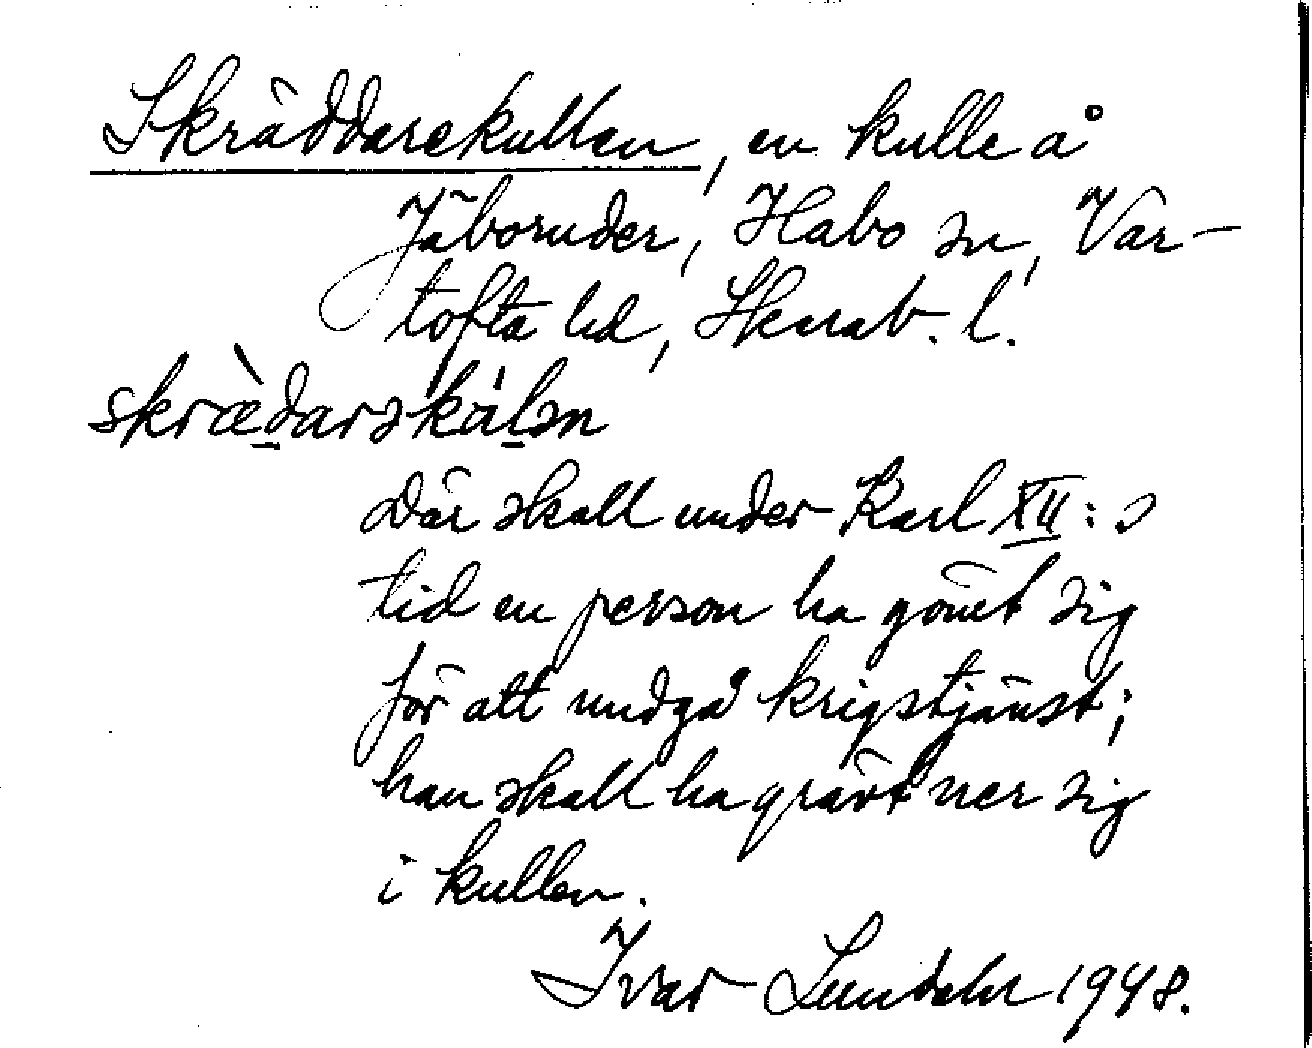 Skräddarekullen, en kulle å
Jäboruder, Habo sn, Var-
tofta hd, Skarab. l.
skræ̀darəkúlən
Där skall under Karl XII:s
tid en person ha gömt sig
för att undgå krigstjänst;
han skall ha grävt ner sig
i kullen.
Ivar Lundahl 1948.